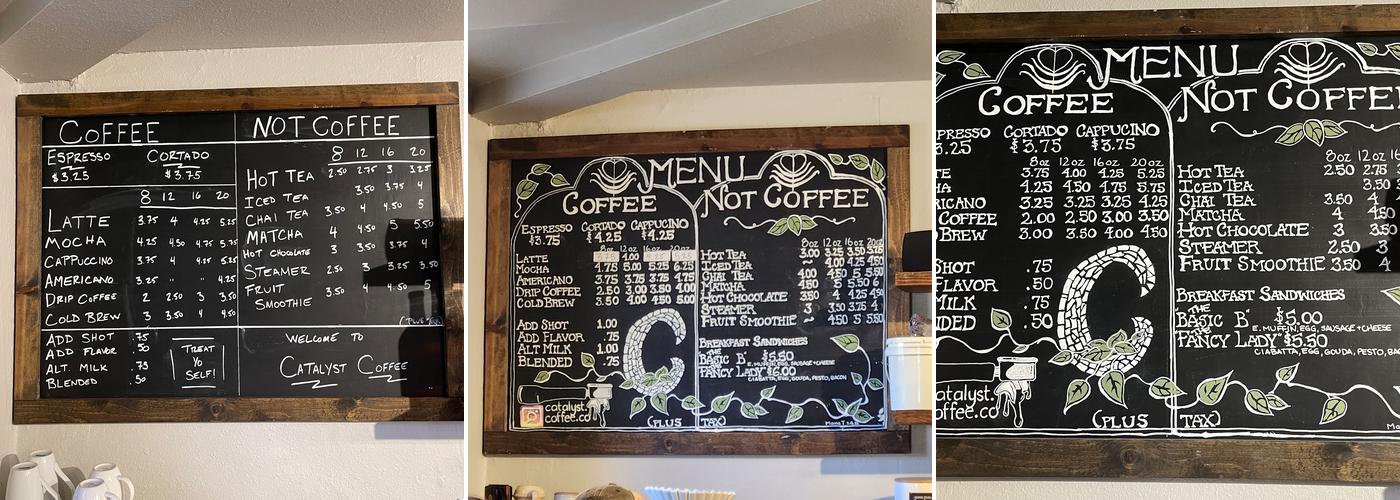 COFFEE
ESPRESSO CORTADO
$3.25 $3.75
8 12 16 20
LATTE 3.75 4 4.25 5.25
MOCHA 4.25 4.50 4.75 5.75
CAPPUCCINO 3.75 4 4.25 5.25
AMERICANO 3.25 " 4.25
DRIP COFFEE 2 2.50 3 3.50
COLD BREW 3 3.50 4 4.50
ADD SHOT .75
ADD FLAVOR .50
ALT. MILK .75
BLENDED .50
TREAT
YO
SELF!
NOT COFFEE
8 12 16 20
HOT TEA 2.50 2.75 3 3.25
ICED TEA 3.50 3.75 4
CHAI TEA 3.50 4 4.50 5
MATCHA 4 4.50 5 5.50
HOT CHOCOLATE 3 3.50 3.75 4
STEAMER 2.50 3 3.25 3.50
FRUIT 3.50 4 4.50 5
SMOOTHIE
(PLUS TAX)
WELCOME TO
CATALYST COFFEE
MENU
COFFEE
ESPRESSO CORTADO CAPPUCINO
$3.75 $4.25 $4.25
8oz 12oz 16oz 20oz
LATTE 4.00
MOCHA 4.75 5.00 5.25 6.25
AMERICANO 3.25 3.75 3.75 4.75
DRIP COFFEE 2.50 3.00 3.50 4.00
COLD BREW 3.50 4.00 4.50 5.00
ADD SHOT 1.00
ADD FLAVOR .75
ALT MILK 1.00
BLENDED .75
catalyst.
coffee.co
NOT COFFEE
8oz 12oz 16oz 20oz
HOT TEA 3.00 3.25 3.50 3.75
ICED TEA 4.00 4.25 4.50
CHAI TEA
MATCHA 4.50 5 5.50 6
HOT CHOCOLATE 3.50 4 4.25 4.50
STEAMER 3 3.50 3.75 4
FRUIT SMOOTHIE 4.50 5 5.50
BREAKFAST SANDWICHES
"THE
BASIC B" $5.50
E. MUFFIN, EGG, SAUSAGE + CHEESE
FANCY LADY $6.00
CIABATTA, EGG, GOUDA, PESTO, BACON
(PLUS TAX)
MENU
COFFEE
PRESSO CORTADO CAPPUCINO
3.25 $3.75 $3.75
8oz 12oz 16oz 20oz
3.75 4.00 4.25 5.25
HA 4.25 4.50 4.75 5.75
RICANO 3.25 3.25 3.25 4.25
COFFEE 2.00 2.50 3.00 3.50
BREW 3.00 3.50 4.00 4.50
SHOT .75
FLAVOR .50
MILK .75
DED .50
catalyst.
offee.co
NOT COFFEE
8oz 12oz 16
HOT TEA 2.50 2.75 3
ICED TEA 3.50
CHAI TEA 3.50 4
MATCHA 4 4.50
HOT CHOCOLATE 3 3.50
STEAMER 2.50 3
FRUIT SMOOTHIE 3.50 4
BREAKFAST SANDWICHES
"THE
BASIC B" $5.00
E. MUFFIN, EGG, SAUSAGE + CHEES
"FANCY LADY" $5.50
CIABATTA, EGG, GOUDA, PESTO, BA
(PLUS TAX)